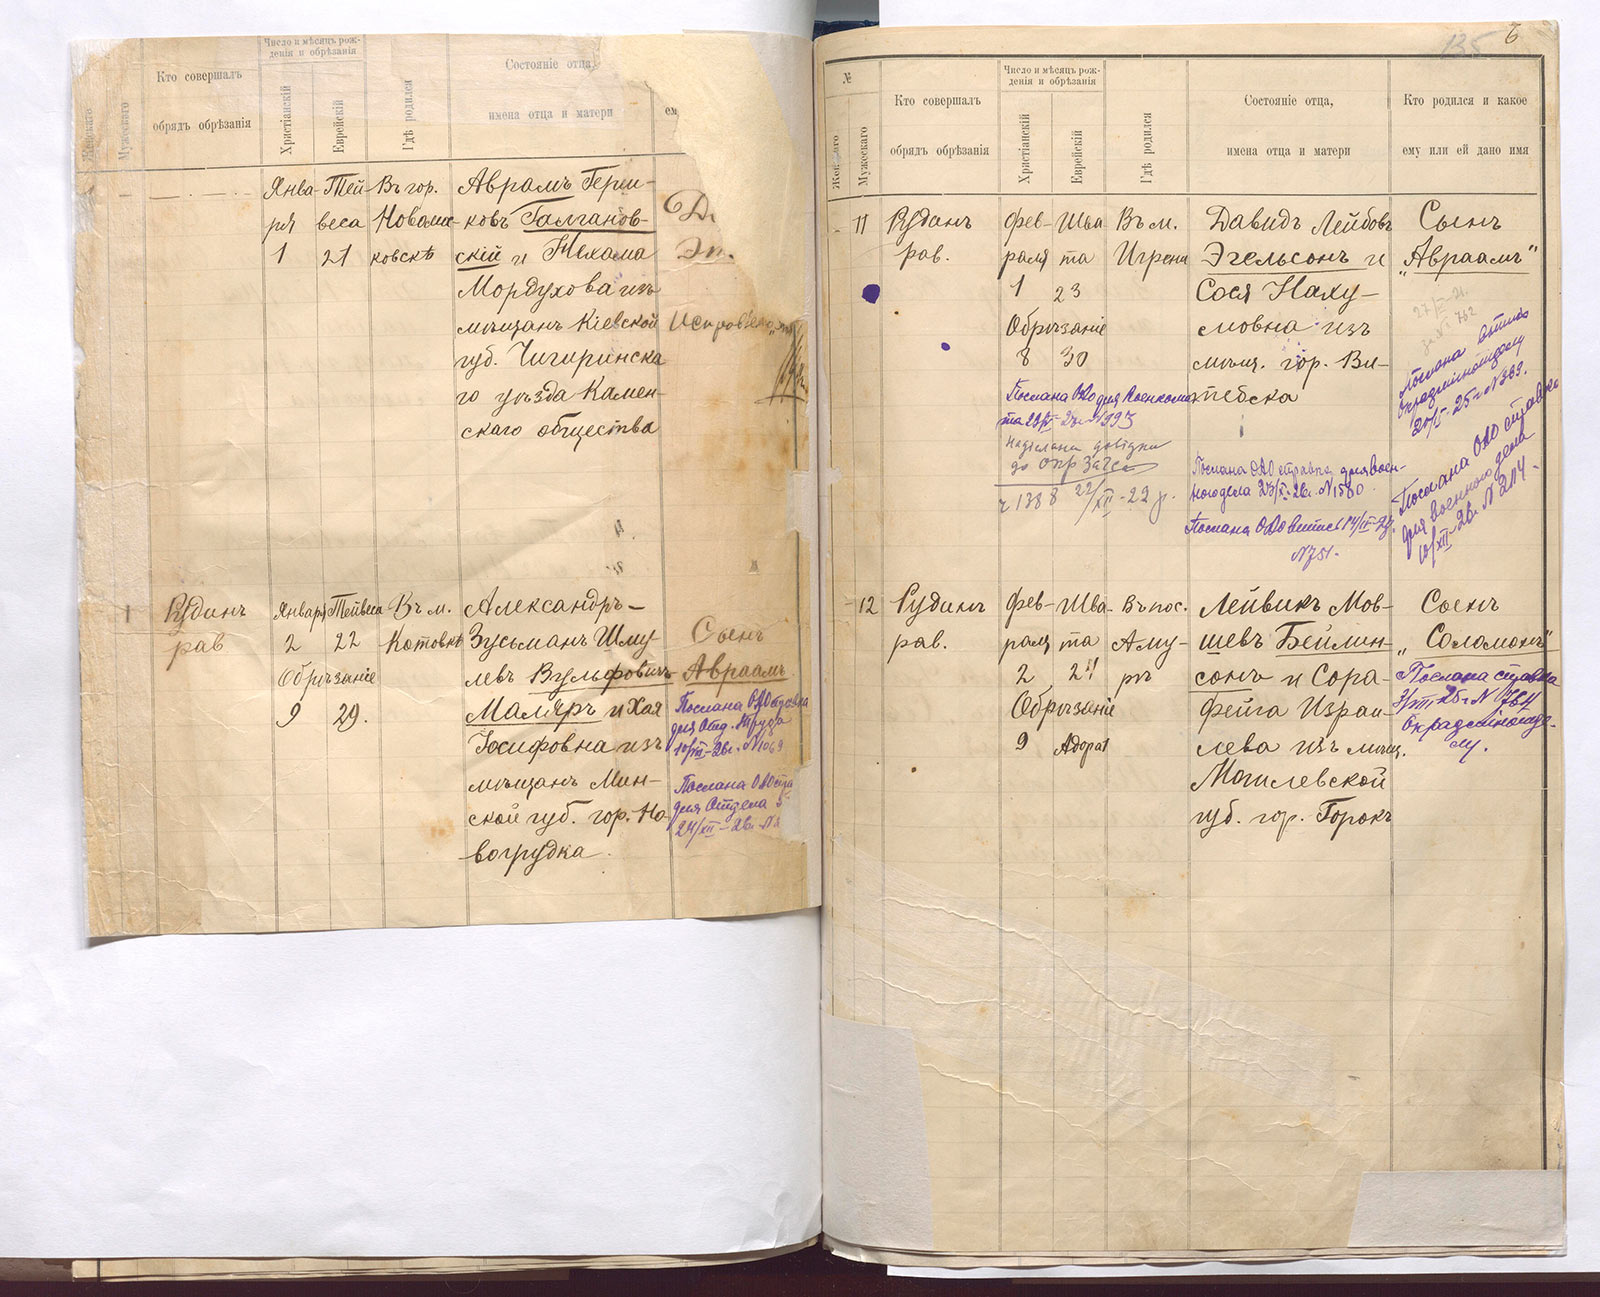 Женскаго
Мужескаго
Кто совершалъ
обрядъ обрѣзанія
Число и мѣсяцъ рож-
денія и обрѣзанія
Христіанскій
Еврейскій
Гдѣ родился
Состояніе отца,
имена отца и матери
Янва-
ря
1
Тей-
веса
21
Въ гор.
Новомос-
ковскѣ
Аврамъ Герш-
ковъ Галганов-
скій и Нехама
Мордухова изъ
мѣщанъ Кіевской
губ. Чигиринска
го уѣзда Камен-
скаго общества
1
Рудинъ
рав
Января
2
Тейвеса
22
Обрѣзаніе
9 29.
Въ м.
Котовкѣ
Александръ-
Зусьманъ Шму-
левъ Вульфовичъ
Маляръ и Хая
Іосифовна изъ
мѣщанъ Мин-
ской губ. гор. Но-
вогрудка
Сынъ
Авраамъ
Послана ОАО справка
для Отд. Труда
10/XII-26г. N1069
Послана ОАО спра
для Отдела
24/XII-26г. N
135 6
№
Женскаго
Мужескаго
Кто совершалъ
обрядъ обрѣзанія
Число и мѣсяцъ рож-
денія и обрѣзанія
Христіанскій
Еврейскій
Гдѣ родился
Состояніе отца,
имена отца и матери
Кто родился и какое
ему или ей дано имя
11
Рудинъ
рав.
Фев-
раля
1
Шва
та
23
Обрѣзаніе
8 30
Въ м.
Игрени
Давидъ Лейбовъ
Эгельсонъ и
Сося Наху-
мовна изъ
мѣщ. гор. Ви-
тебска
Сынъ
„Авраамъ"
Послана ОАО для Военкома
Надіслана довідка
ч 1388 22/XII-22 р.
Послана ОАО справка для воен-
ногодела 23/X-26г. N1500
Послана ОАО выпись 14/IX-27г.
N751.
Послана ОАО справка
для военного дела
10/XII-26г. N214-
12
Рудинъ
рав.
Фев-
раля
2
Шва-
та
24
Обрѣзаніе
9 Адора 1
Въ пос.
Аму-
рѣ
Лейвикъ Мов-
шевъ Бейлин-
сонъ и Сора-
Фейга Израи-
лева изъ мѣщ.
Могилевской
губ. гор. Горокъ
Сынъ
„Соломонъ"
Послана справка
3/VIII 25г N 764
Окрадминотде-
лу.